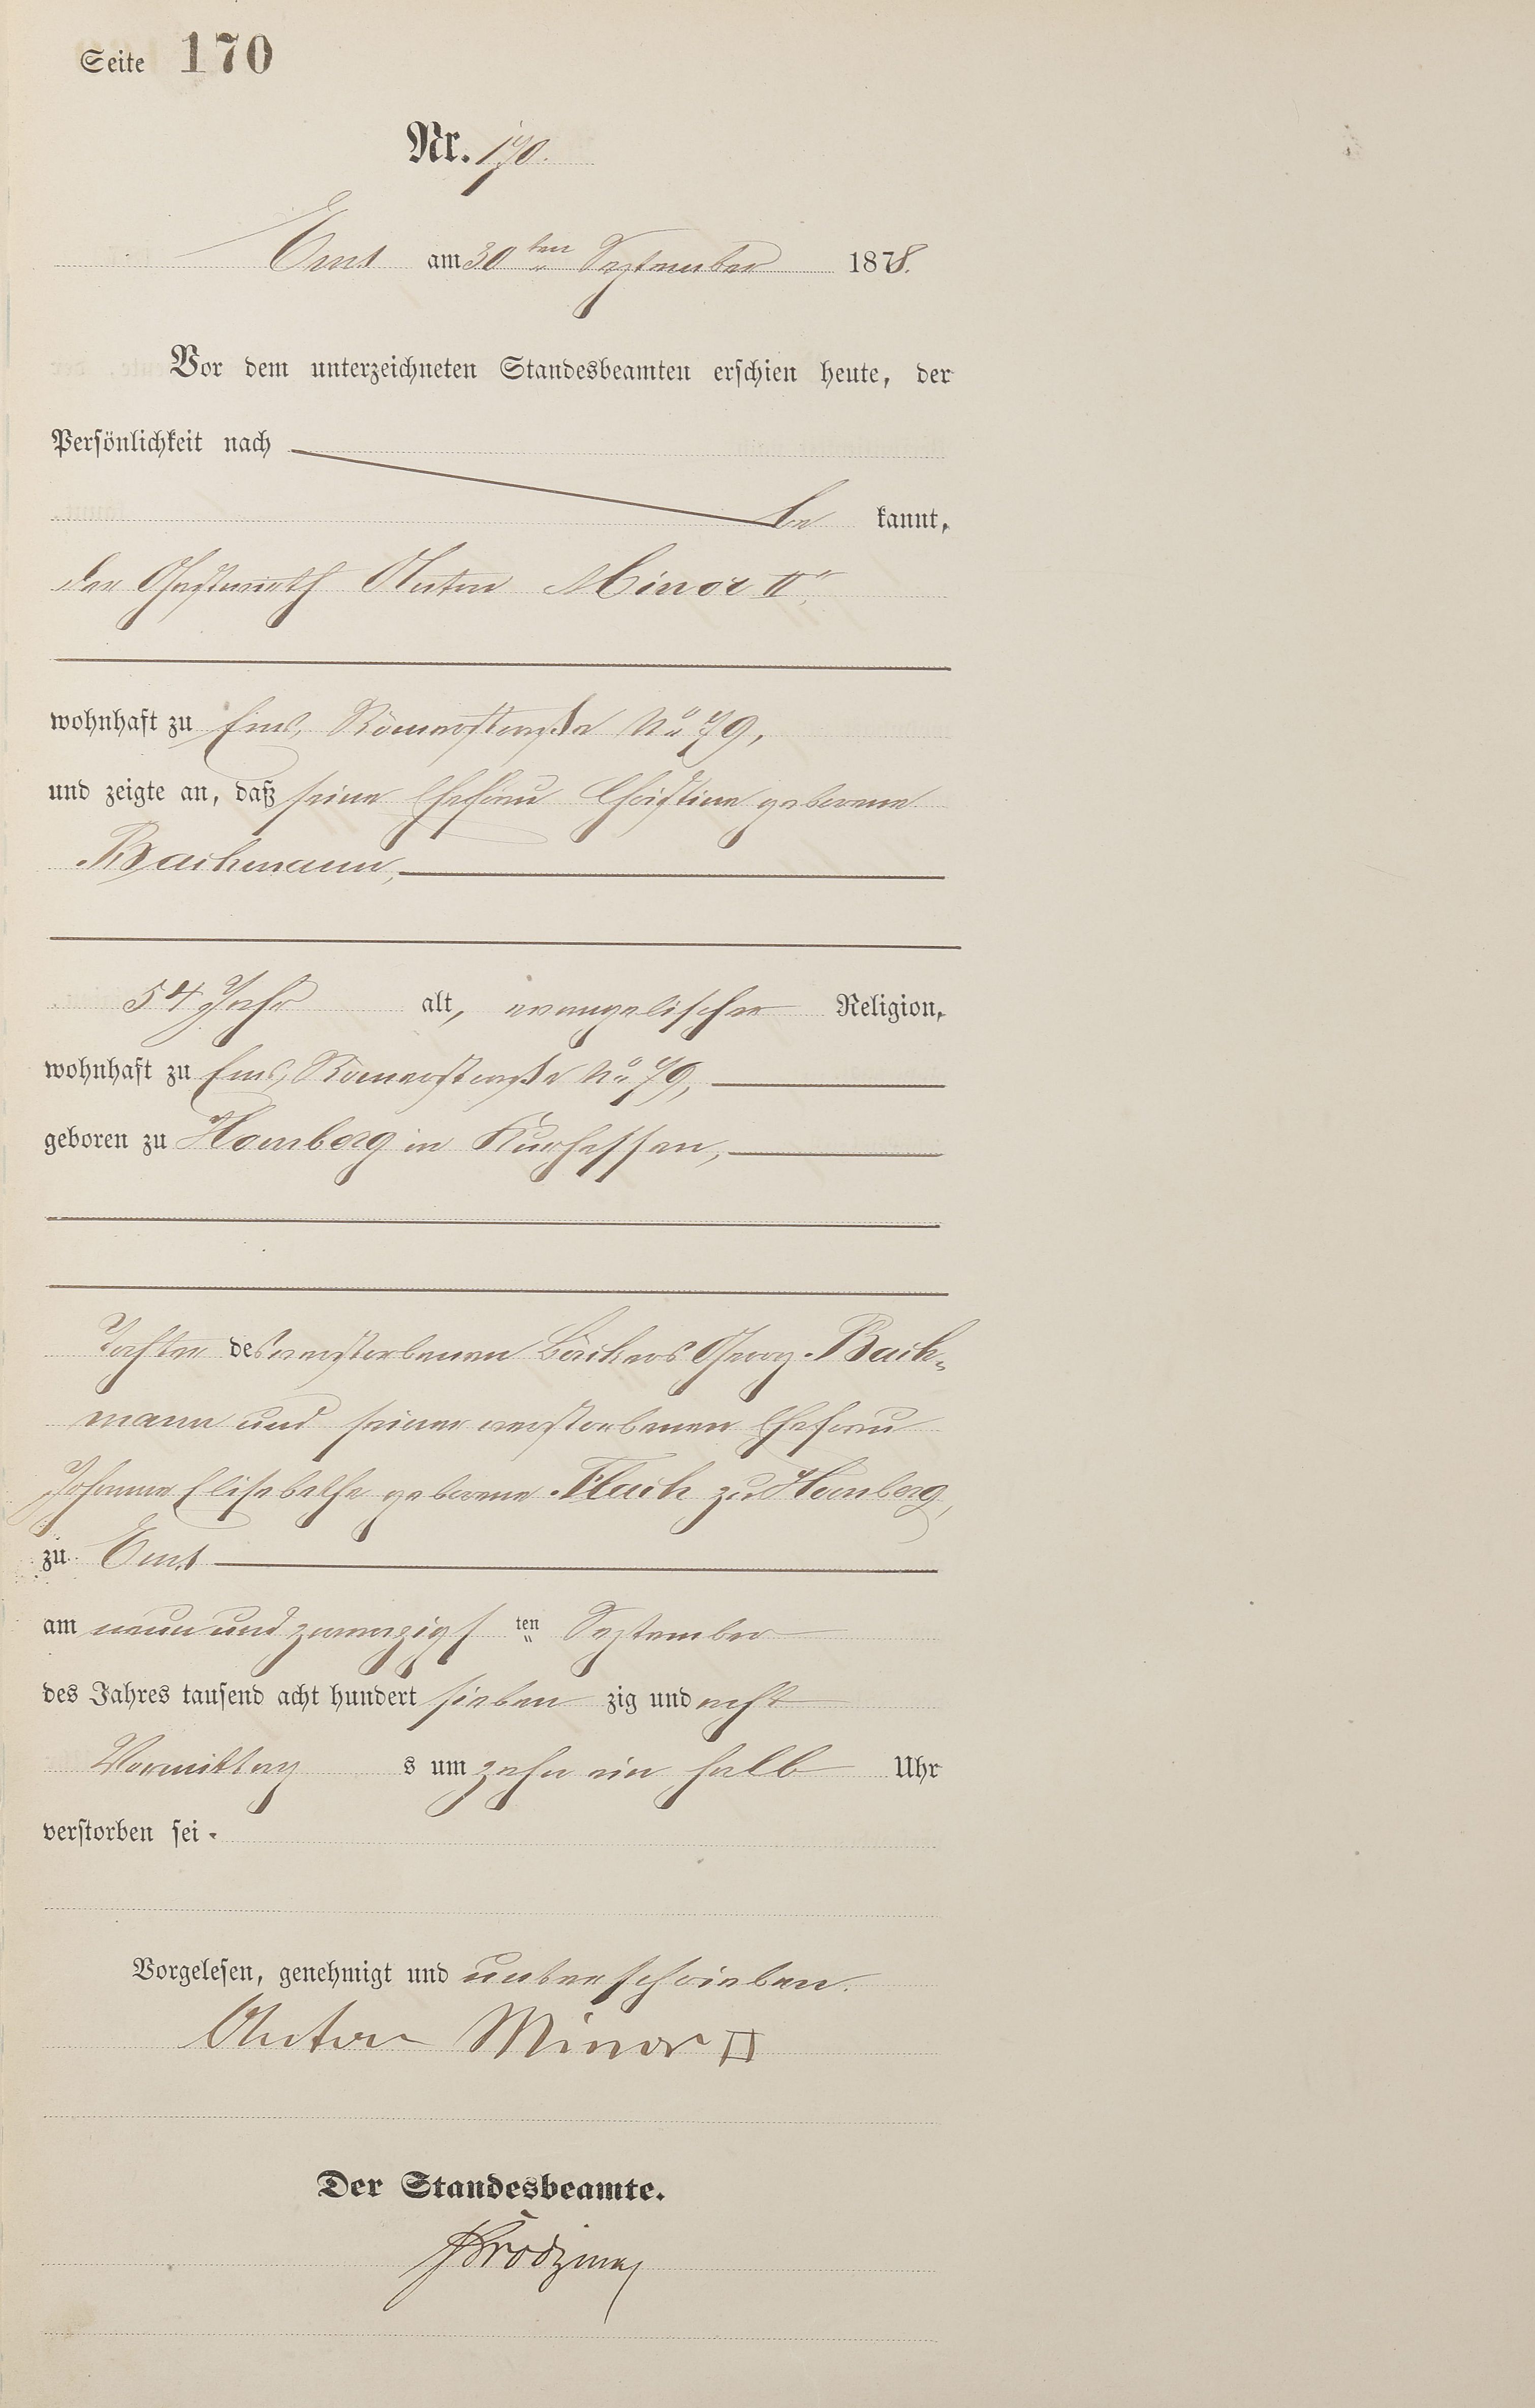 Seite 170
Nr. 170.
Ems am 30ten September 1878.
Vor dem unterzeichneten Standesbeamten erschien heute, der
Persönlichkeit nach
be kannt,
der Gastwirth Anton Minor IIr,
wohnhaft zu Ems, Römerstraße No 79,
und zeigte an, daß seine Ehefrau Christine geborene
Bachmann,
54 Jahr alt, evangelischer Religion,
wohnhaft zu Ems, Römerstraße No 79,
geboren zu Homberg in Kurhessen,
Tochter des verstorbenen Bäckers Georg Bach-
mann und seiner verstorbenen Ehefrau
Johanne Elisabethe geborene Flach zu Homberg,
zu Ems
am neun und zwanzigsten September
des Jahres tausend acht hundert sieben zig und acht
Vormittag s um zehn ein halb Uhr
verstorben sei.
Vorgelesen, genehmigt und unterschrieben.
Anton Minor II
Der Standesbeamte.